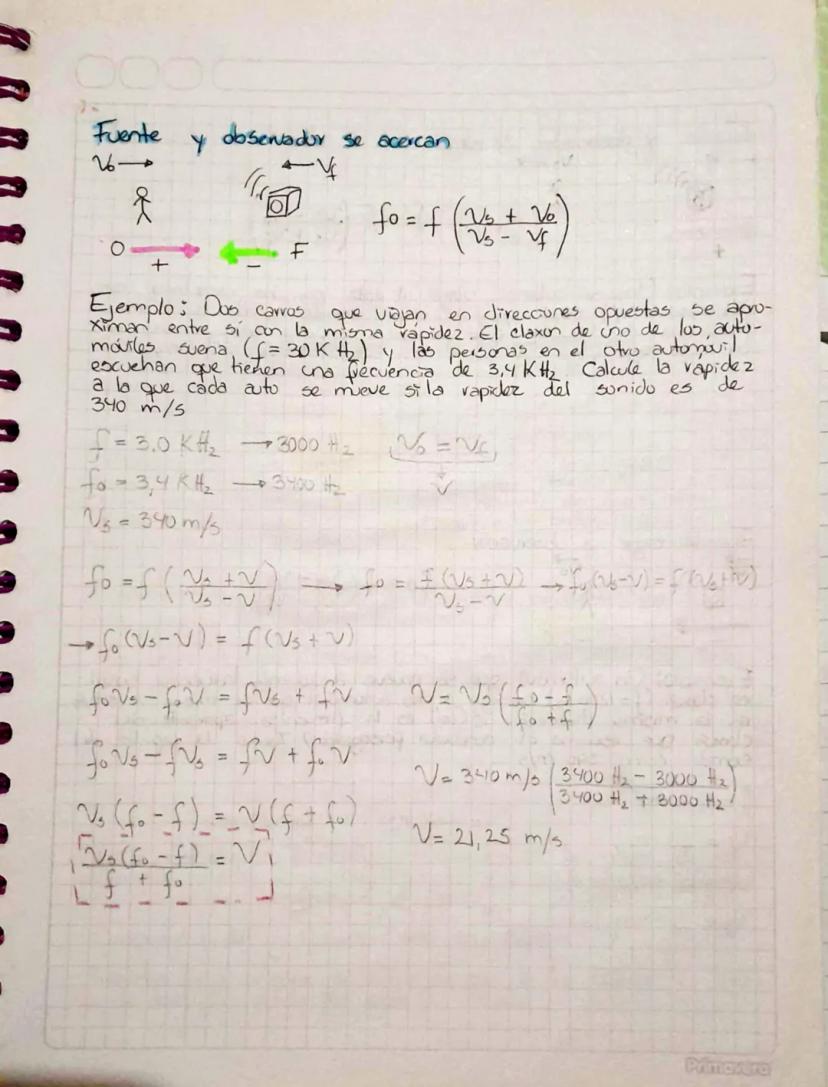 Fuente y observador se acercan
Vo → ← Vf
fo = f (Vs + Vo / Vs - Vf)
O F
+ -
Ejemplo: Dos carros que viajan en direcciones opuestas se apro-
ximan entre sí con la misma rápidez. El claxon de uno de los auto-
móviles suena (f = 30 K Hz) y las personas en el otro automóvil
escuchan que tienen una frecuencia de 3,4 KHz. Calcule la rapidez
a la que cada auto se mueve si la rapidez del sonido es de
340 m/s
f = 3.0 KHz → 3000 Hz Vo = Vf
fo = 3,4 KHz → 3400 Hz V
Vs = 340 m/s
fo = f (Vs + V / Vs - V) → fo = f (Vs + V) / Vs - V → fo (Vs - V) = f (Vs + V)
→ fo (Vs - V) = f (Vs + V)
foVs - foV = fVs + fV V = Vs (fo - f / fo + f)
foVs - fVs = fV + foV
V = 340 m/s (3400 Hz - 3000 Hz / 3400 Hz + 3000 Hz)
Vs (fo - f) = V (f + fo)
V = 21,25 m/s
Vs (fo - f) / f + fo = V
Primavera